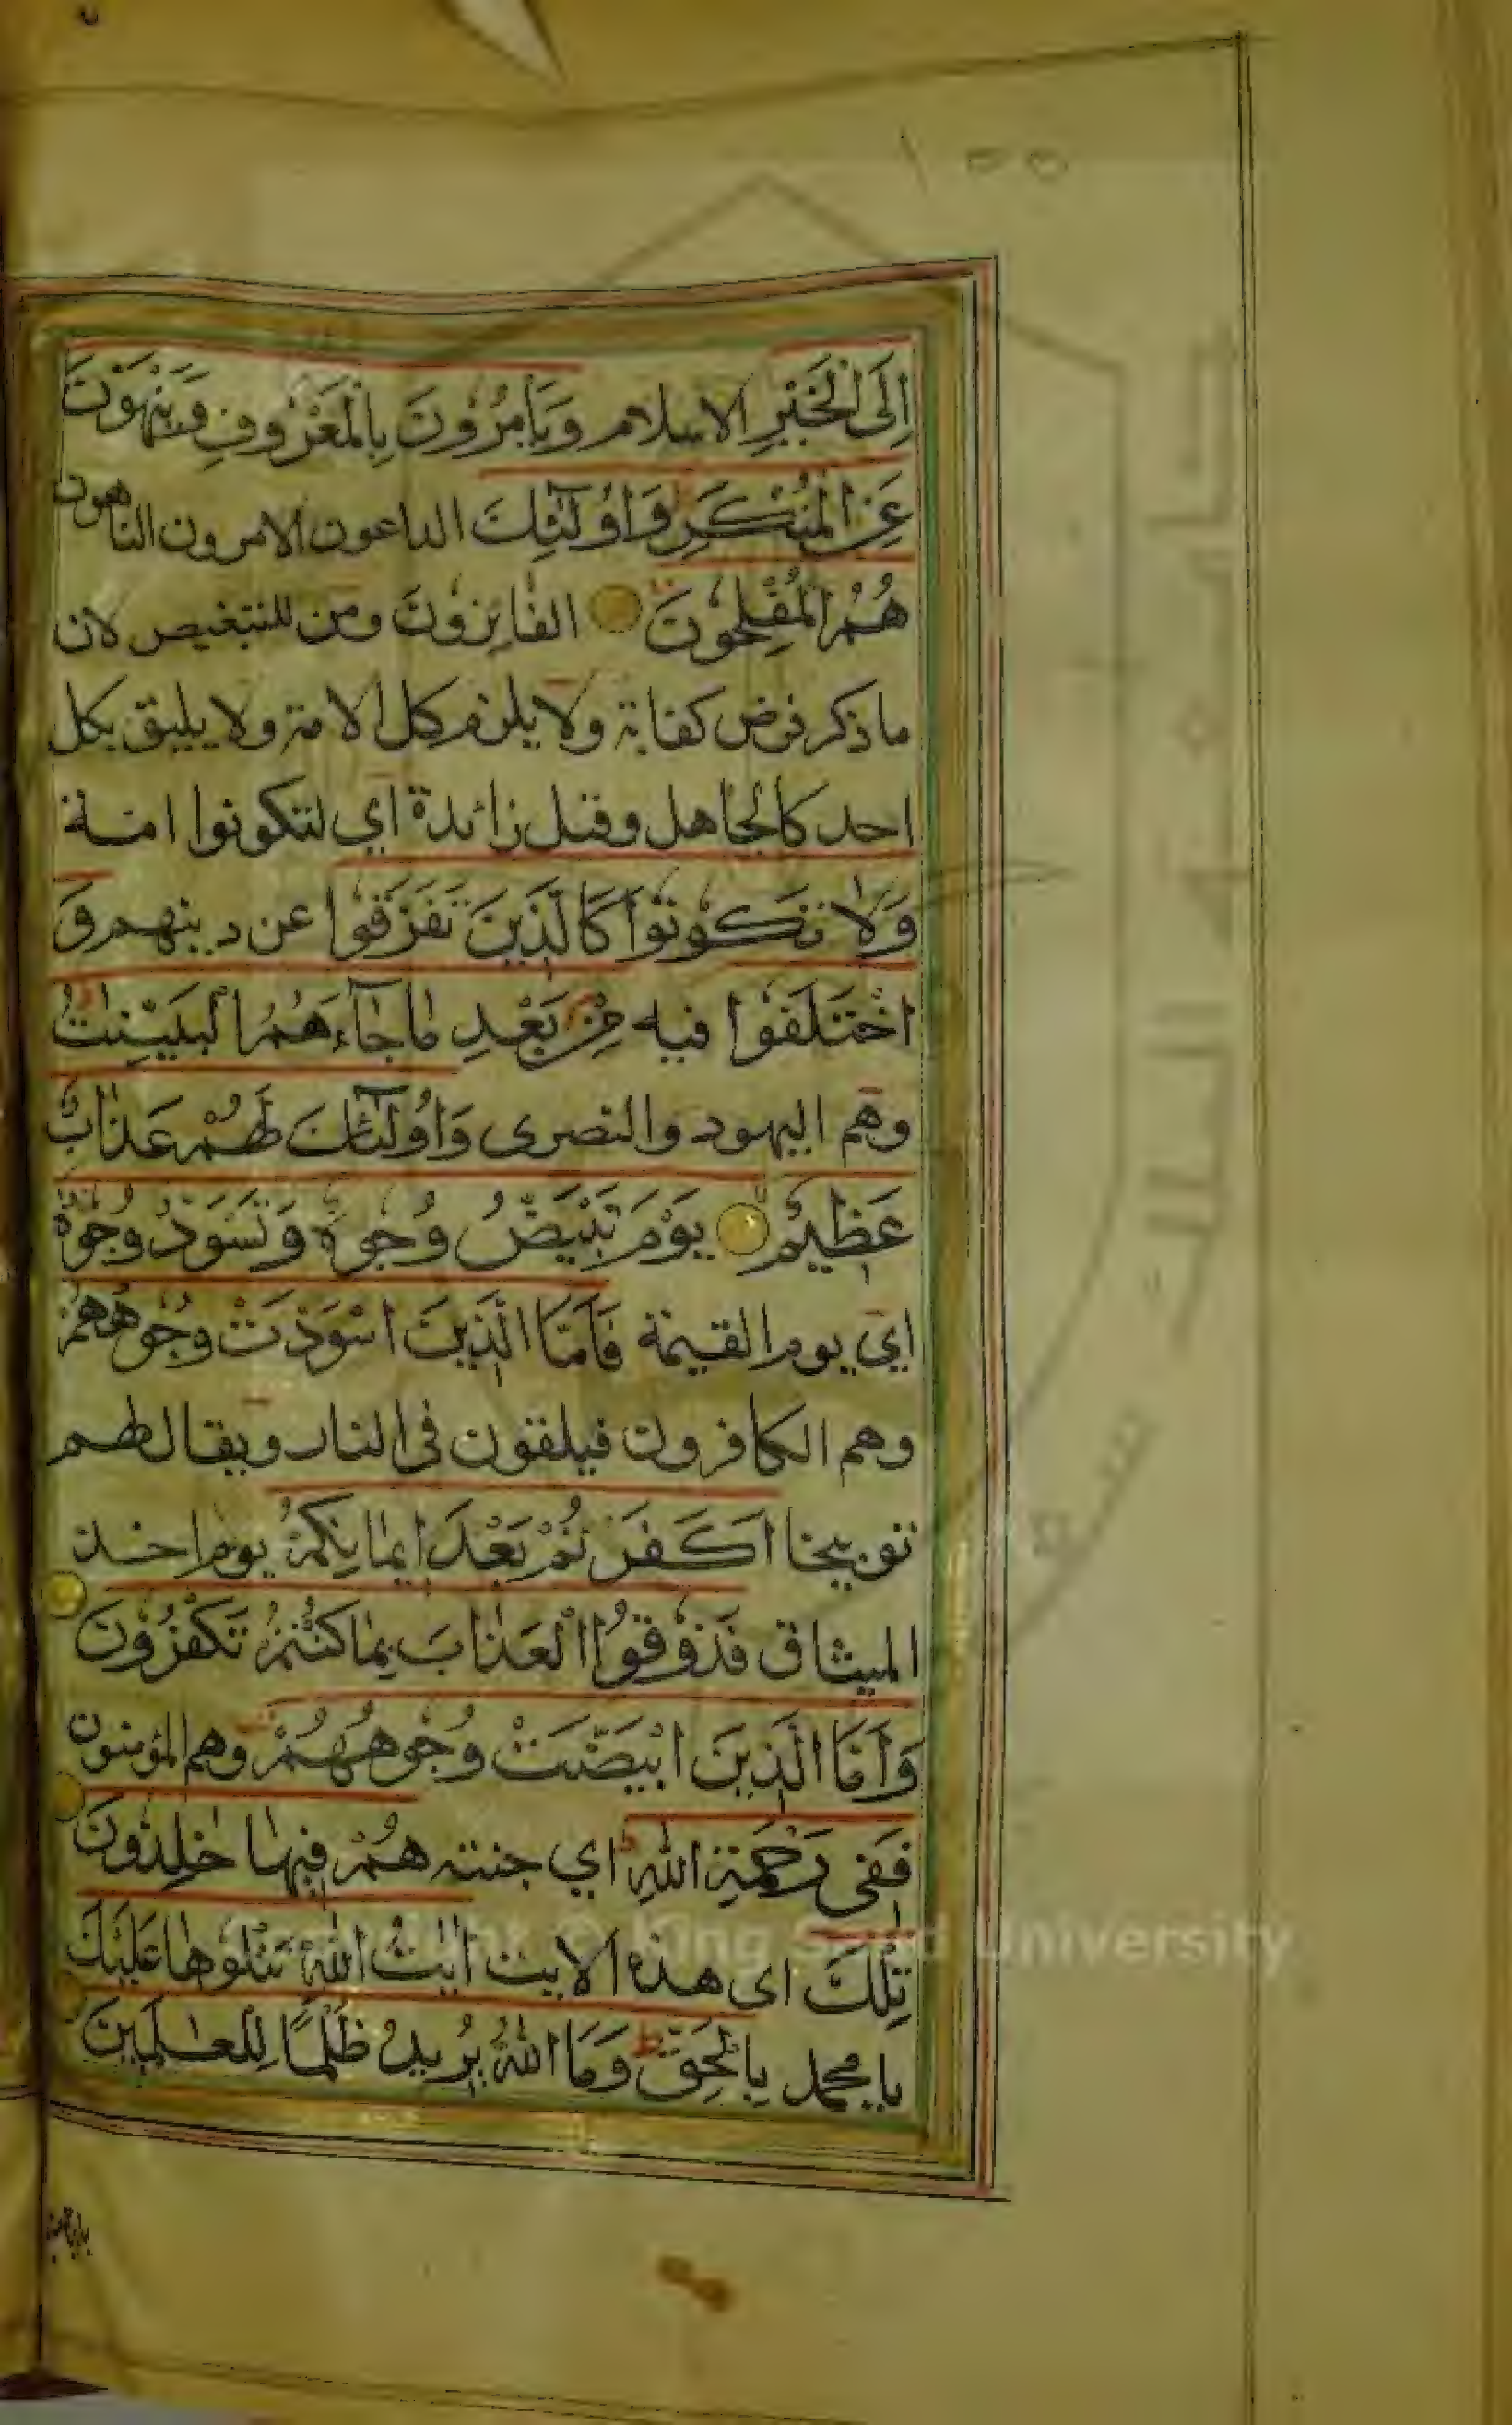 اِلَى الْخَيْرِ الاسلام وَيَأْمُرُونَ بِالْمَعْرُوفِ وَيَنْهَوْنَ
عَنِ الْمُنْكَرِ وَاُولٰٓئِكَ الداعون الامرون الناهون
هُمُ الْمُفْلِحُونَ الفائزونَ ومن للتبعيض لان
ما ذكر فرض كفاية ولا يلزم كل الامة ولا يليق بكل
احد كالجاهل وقيل زائدة اي لتكونوا امة
وَلَا تَكُونُوا كَالَّذِينَ تَفَرَّقُوا عن دينهم وَ
اخْتَلَفُوا فيه مِنْ بَعْدِ مَا جَآءَهُمُ الْبَيِّنٰتُ
وهم اليهود والنصرى وَاُولٰٓئِكَ لَهُمْ عَذَابٌ
عَظِيمٌ يَوْمَ تَبْيَضُّ وُجُوهٌ وَتَسْوَدُّ وُجُوهٌ
اي يوم القيمة فَاَمَّا الَّذِينَ اسْوَدَّتْ وُجُوهُهُمْ
وهم الكافرون فيلقون في النار ويقال لهم
توبيخا اَكَفَرْتُمْ بَعْدَ اِيمَانِكُمْ يوم اخذ
الميثاق فَذُوقُوا الْعَذَابَ بِمَا كُنْتُمْ تَكْفُرُونَ
وَاَمَّا الَّذِينَ ابْيَضَّتْ وُجُوهُهُمْ وهم المؤمنون
فَفِى رَحْمَةِ اللّٰهِ اي جنته هُمْ فِيهَا خٰلِدُونَ
تِلْكَ اى هذه الايت اٰيٰتُ اللّٰهِ نَتْلُوهَا عَلَيْكَ
يا محمد بِالْحَقِّ وَمَا اللّٰهُ يُرِيدُ ظُلْمًا لِلْعٰلَمِينَ
King Saud University